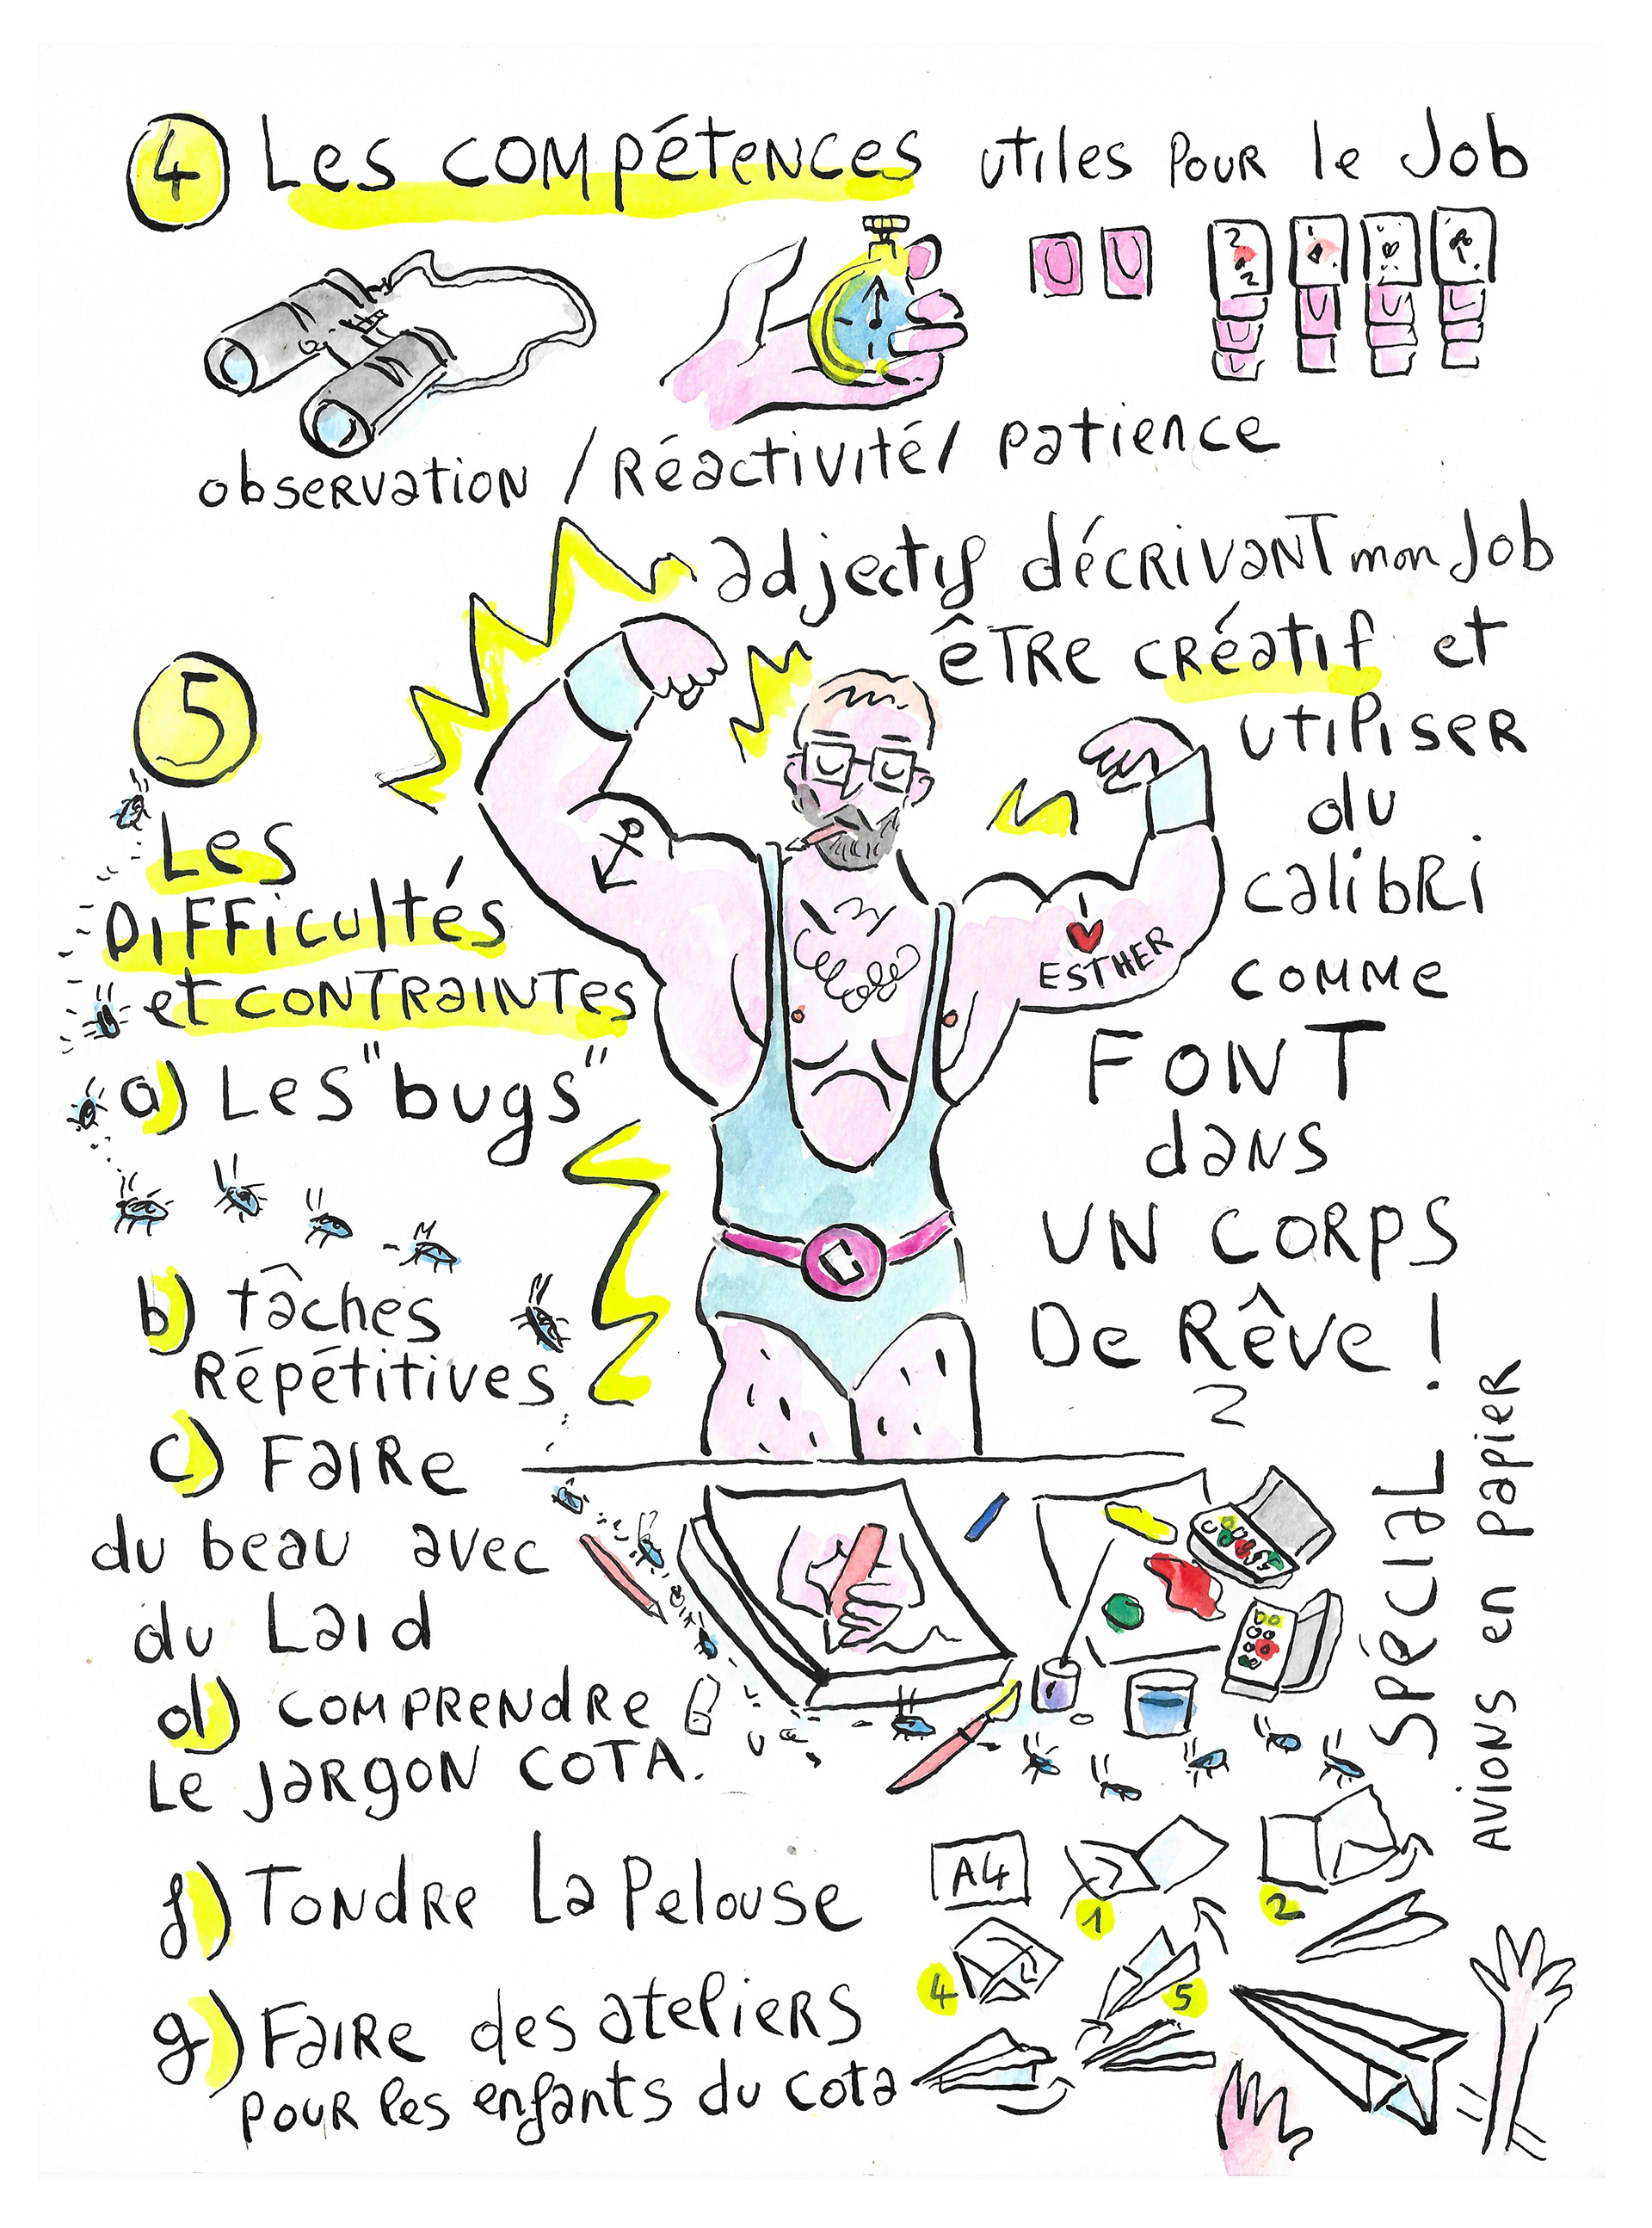 4 Les compétences utiles pour le Job
observation / Réactivité / patience
adjectif décrivant mon Job
être créatif et
utiliser
du
calibri
comme
FONT
dans
UN CORPS
De Rêve !
2
ESTHER
5
Les
Difficultés
et contraintes
a) Les "bugs"
b) tâches
Répétitives
c) Faire
du beau avec
du Laid
d) comprendre
Le jargon COTA.
f) Tondre La Pelouse
g) Faire des ateliers
pour les enfants du cota
SPÉCIAL
AVIONS en papier
A4
1
2
4
5